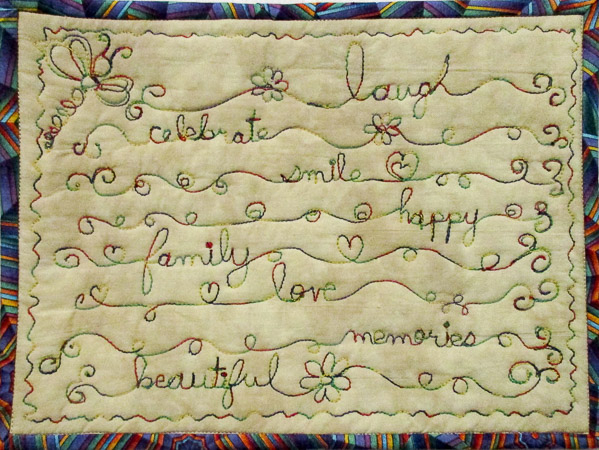 laugh
celebrate
smile
happy
family
love
memories
beautiful